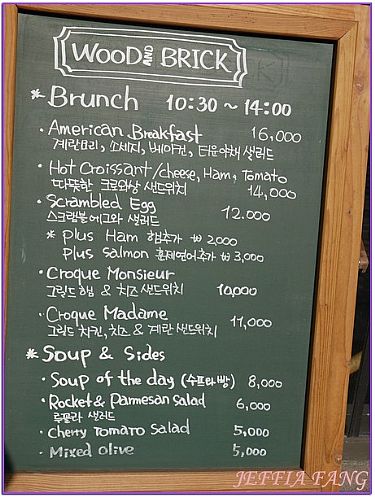 WOOD AND BRICK
* Brunch 10:30 ~ 14:00
· American Breakfast 16,000
계란요리, 소세지, 베이컨, 더운야채 샐러드
· Hot Croissant/cheese, Ham, Tomato
따뜻한 크로와상 샌드위치 14,000
· Scrambled Egg 12.000
스크램블에그와 샐러드
* Plus Ham 햄추가 ₩ 2,000
Plus Salmon 훈제연어추가 ₩ 3,000
· Croque Monsieur
그릴드 햄 & 치즈 샌드위치 10,000
· Croque Madame
그릴드 치킨, 치즈 & 계란 샌드위치 11,000
* Soup & Sides
· Soup of the day (수프와 빵) 8,000
· Rocket & Parmesan Salad 6,000
루꼴라 샐러드
· Cherry Tomato Salad 5,000
· Mixed Olive 5,000
JEFFIA FANG